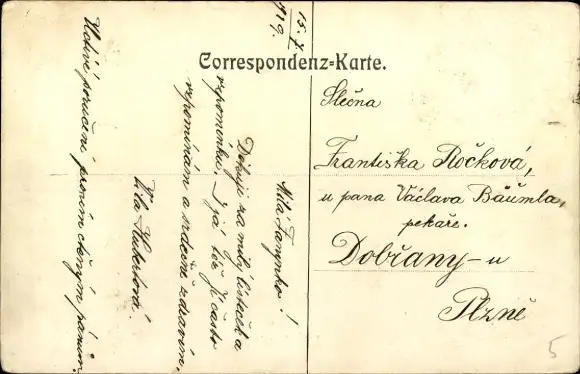 Correspondenz-Karte.
15. X.
1919.
Milá Fanynko!
Děkuji za milý lísteček a
vzpomínku. I já též Ji často
vzpomínám a srdečně zdravím.
Víla
Uctivé poručení prosím cteným pánům.
Slečna
Františka Ročková,
u pana Václava Bäumla,
pekaře.
Dobřany - u
Plzně
5